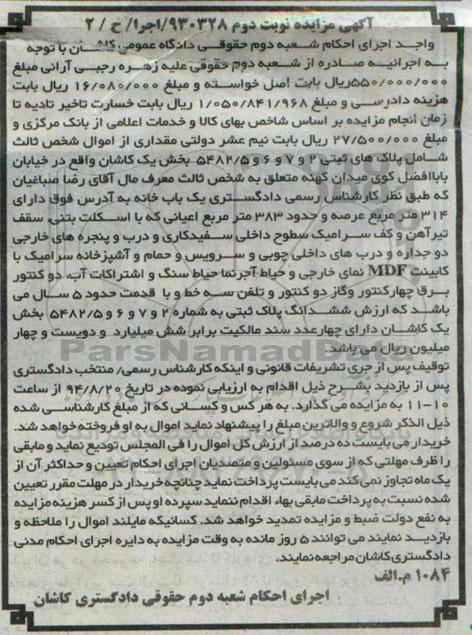 آگهی مزایده نوبت دوم ۹۳۰۳۲۸/اجرا/ ح / ۲
واحد اجرای احکام شعبه دوم حقوقی دادگاه عمومی کاشان با توجه
به اجرائیه صادره از شعبه دوم حقوقی علیه زهره رجبی آرانی مبلغ
۵۵۰/۰۰۰/۰۰۰ریال بابت اصل خواسته و مبلغ ۱۶/۰۸۰/۰۰۰ ریال بابت
هزینه دادرسی و مبلغ ۱/۰۵۰/۸۴۱/۹۶۸ ریال بابت خسارت تاخیر تادیه تا
زمان انجام مزایده بر اساس شاخص بهای کالا و خدمات اعلامی از بانک مرکزی و
مبلغ ۲۷/۵۰۰/۰۰۰ ریال بابت نیم عشر دولتی مقداری از اموال شخص ثالث
شامل پلاک های ثبتی ۲ و ۷ و ۶ و ۵۴۸۲/۵ بخش یک کاشان واقع در خیابان
باباافضل کوی میدان کهنه متعلق به شخص ثالث معرف مال آقای رضا صباغیان
که طبق نظر کارشناس رسمی دادگستری یک باب خانه به آدرس فوق دارای
۳۱۴ متر مربع عرصه و حدود ۳۸۳ متر مربع اعیانی که با اسکلت بتنی سقف
تیرآهن و کف سرامیک سطوح داخلی سفیدکاری و درب و پنجره های خارجی
دو جداره و درب های داخلی چوبی و سرویس و حمام و آشپزخانه سرامیک با
کابینت MDF نمای خارجی و حیاط آجرنما حیاط سنگ و اشتراکات آب، دو کنتور
برق چهارکنتور وگاز دو کنتور و تلفن سه خط و با قدمت حدود ۵ سال می
باشد که ارزش ششدانگ پلاک ثبتی به شماره ۲ و ۷ و ۶ و ۵۴۸۲/۵ بخش
یک کاشان دارای چهارعدد سند مالکیت برابر شش میلیارد و دویست و چهار
میلیون ریال می باشد.
توقیف پس از جری تشریفات قانونی و اینکه کارشناس رسمی/ منتخب دادگستری
پس از بازدید بشرح ذیل اقدام به ارزیابی نموده در تاریخ ۹۴/۸/۲۰ از ساعت
۱۰-۱۱ به مزایده می گذارد. به هر کس و کسانی که از مبلغ کارشناسی شده
ذیل الذکر شروع و والاترین مبلغ را پیشنهاد نماید اموال به او فروخته خواهد شد.
خریدار می بایست ده درصد از ارزش کل اموال را فی المجلس تودیع نماید و مابقی
را ظرف مهلتی که از سوی مسئولین و متصدیان اجرای احکام تعیین و حداکثر آن از
یک ماه تجاوز نمی کند می بایست پرداخت نماید چنانچه خریدار در مهلت مقرر تعیین
شده نسبت به پرداخت مابقی بهاء اقدام ننماید سپرده او پس از کسر هزینه مزایده
به نفع دولت ضبط و مزایده تمدید خواهد شد. کسانیکه مایلند اموال را ملاحظه و
بازدید نمایند می توانند ۵ روز مانده به وقت مزایده به دایره اجرای احکام مدنی
دادگستری کاشان مراجعه نمایند.
۱۰۸۴ م.الف
اجرای احکام شعبه دوم حقوقی دادگستری کاشان
ParsNamadData